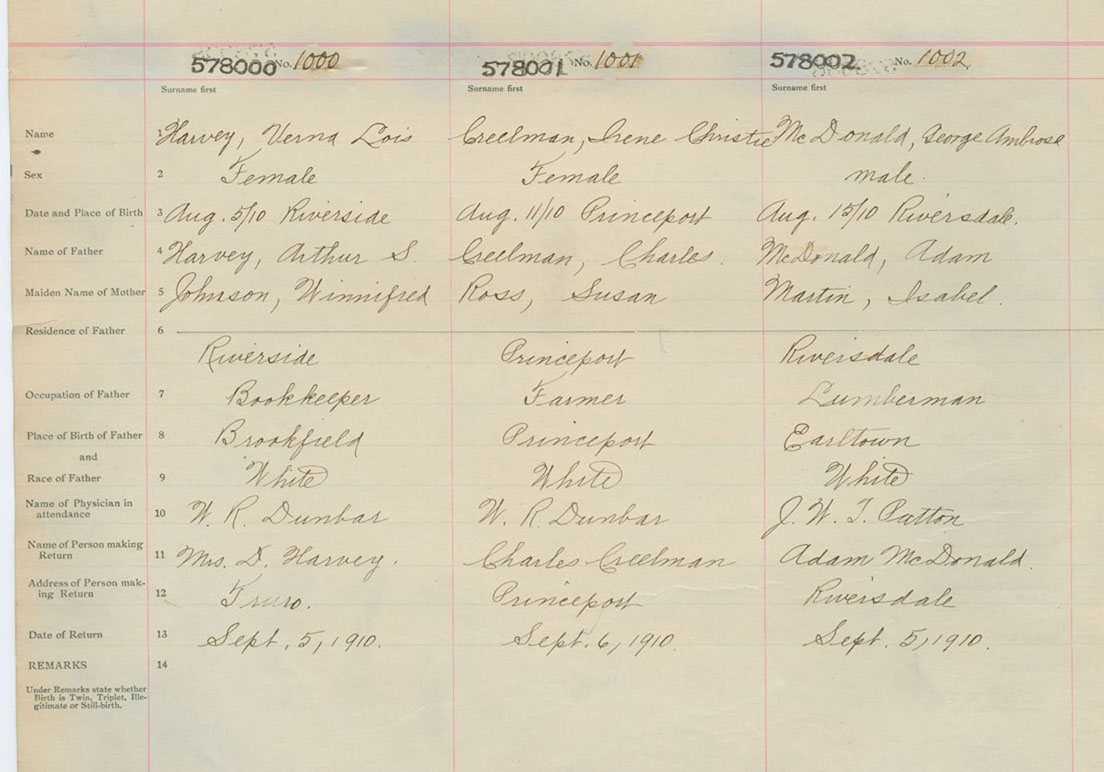 578000 No. 1000 578001 No. 1001 578002 No. 1002
Surname first Surname first Surname first
Name 1 Harvey, Verna Lois Creelman, Irene Christie McDonald, George Ambrose
Sex 2 Female Female male.
Date and Place of Birth 3 Aug. 5/10 Riverside Aug. 11/10 Princeport Aug. 15/10 Riversdale.
Name of Father 4 Harvey, Arthur S. Creelman, Charles. McDonald, Adam
Maiden Name of Mother 5 Johnson, Winnifred Ross, Susan Martin, Isabel.
Residence of Father 6
Riverside Princeport Riversdale
Occupation of Father 7 Bookkeeper Farmer Lumberman
Place of Birth of Father 8 Brookfield Princeport Earltown
and
Race of Father 9 White White White
Name of Physician in
attendance 10 W. R. Dunbar W. R Dunbar J. W. T. Patton
Name of Person making
Return 11 Mrs. D. Harvey. Charles Creelman Adam McDonald.
Address of Person mak-
ing Return 12 Truro. Princeport Riversdale
Date of Return 13 Sept. 5, 1910. Sept. 6, 1910. Sept. 5, 1910.
REMARKS 14
Under Remarks state whether
Birth is Twin, Triplet, Ille-
gitimate or Still-birth.